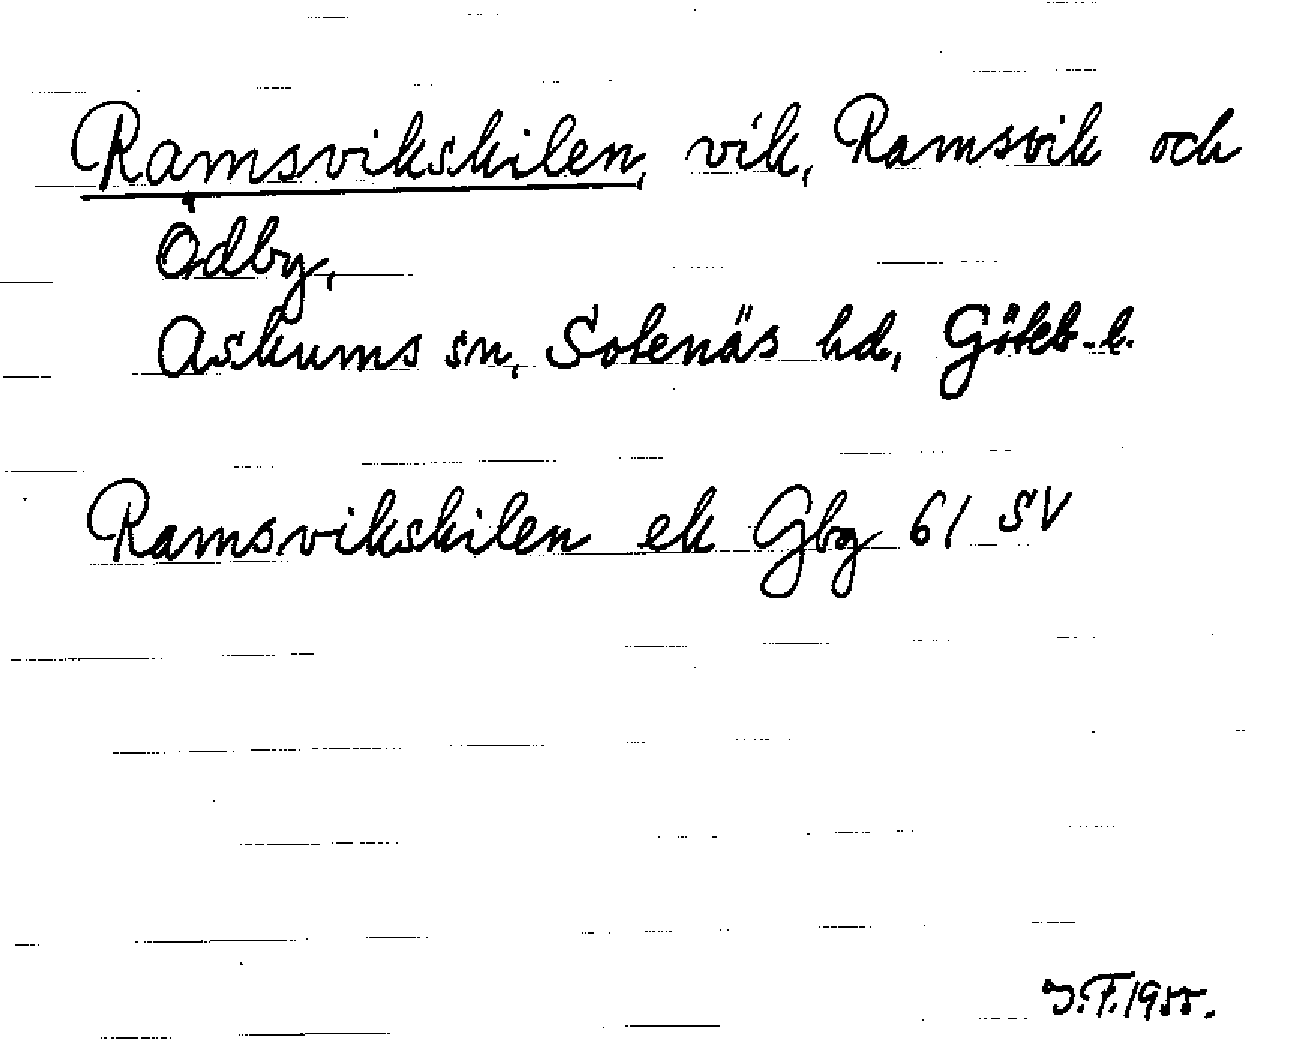 Ramsvikskilen, vik, Ramsvik och
Ödby,
Askums sn, Sotenäs hd, Göteb.l.
Ramsvikskilen ek Gbg 61 SV
J.F.1955.